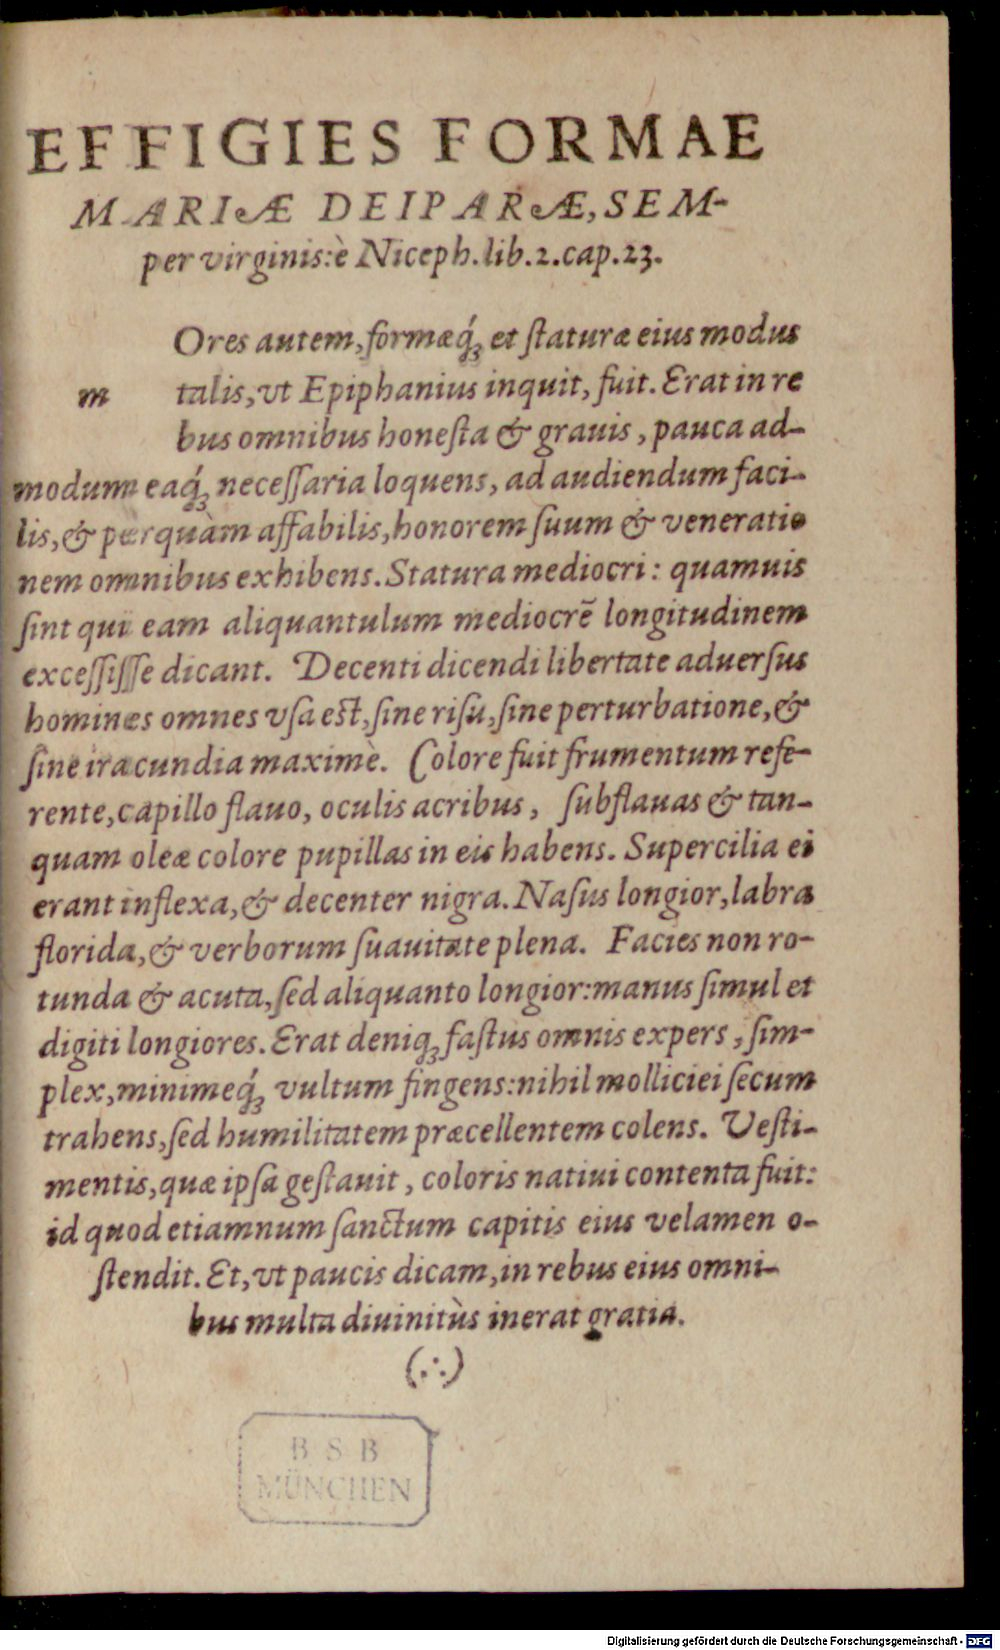 EFFIGIES FORMAE
MARIÆ DEIPARÆ, SEM-
per virginis: è Niceph. lib. 2. cap. 23.
m
Ores autem, formæq́ꝫ et ſtaturæ eius modus
talis, vt Epiphanius inquit, fuit. Erat in re
bus omnibus honeſta & grauis, pauca ad-
modum eaq́ꝫ neceſſaria loquens, ad audiendum faci-
lis, & perquàm affabilis, honorem ſuum & veneratio
nem omnibus exhibens. Statura mediocri: quamuis
ſint qui eam aliquantulum mediocrē longitudinem
exceſſiſſe dicant. Decenti dicendi libertate aduerſus
homines omnes vſa eſt, ſine riſu, ſine perturbatione, &
ſine iracundia maximè. Colore fuit frumentum refe-
rente, capillo flauo, oculis acribus, ſubflauas & tan-
quam oleæ colore pupillas in eis habens. Supercilia ei
erant inflexa, & decenter nigra. Naſus longior, labra
florida, & verborum ſuauitate plena. Facies non ro-
tunda & acuta, ſed aliquanto longior: manus ſimul et
digiti longiores. Erat deniqꝫ faſtus omnis expers, ſim-
plex, minimeq́ꝫ vultum fingens: nihil molliciei ſecum
trahens, ſed humilitatem præcellentem colens. Veſti-
mentis, quæ ipſa geſtauit, coloris natiui contenta fuit:
id quod etiamnum ſanctum capitis eius velamen o-
ſtendit. Et, vt paucis dicam, in rebus eius omni-
bus multa diuinitùs inerat gratia.
(∴)
BSB
MÜNCHEN
Digitalisierung gefördert durch die Deutsche Forschungsgemeinschaft - DFG